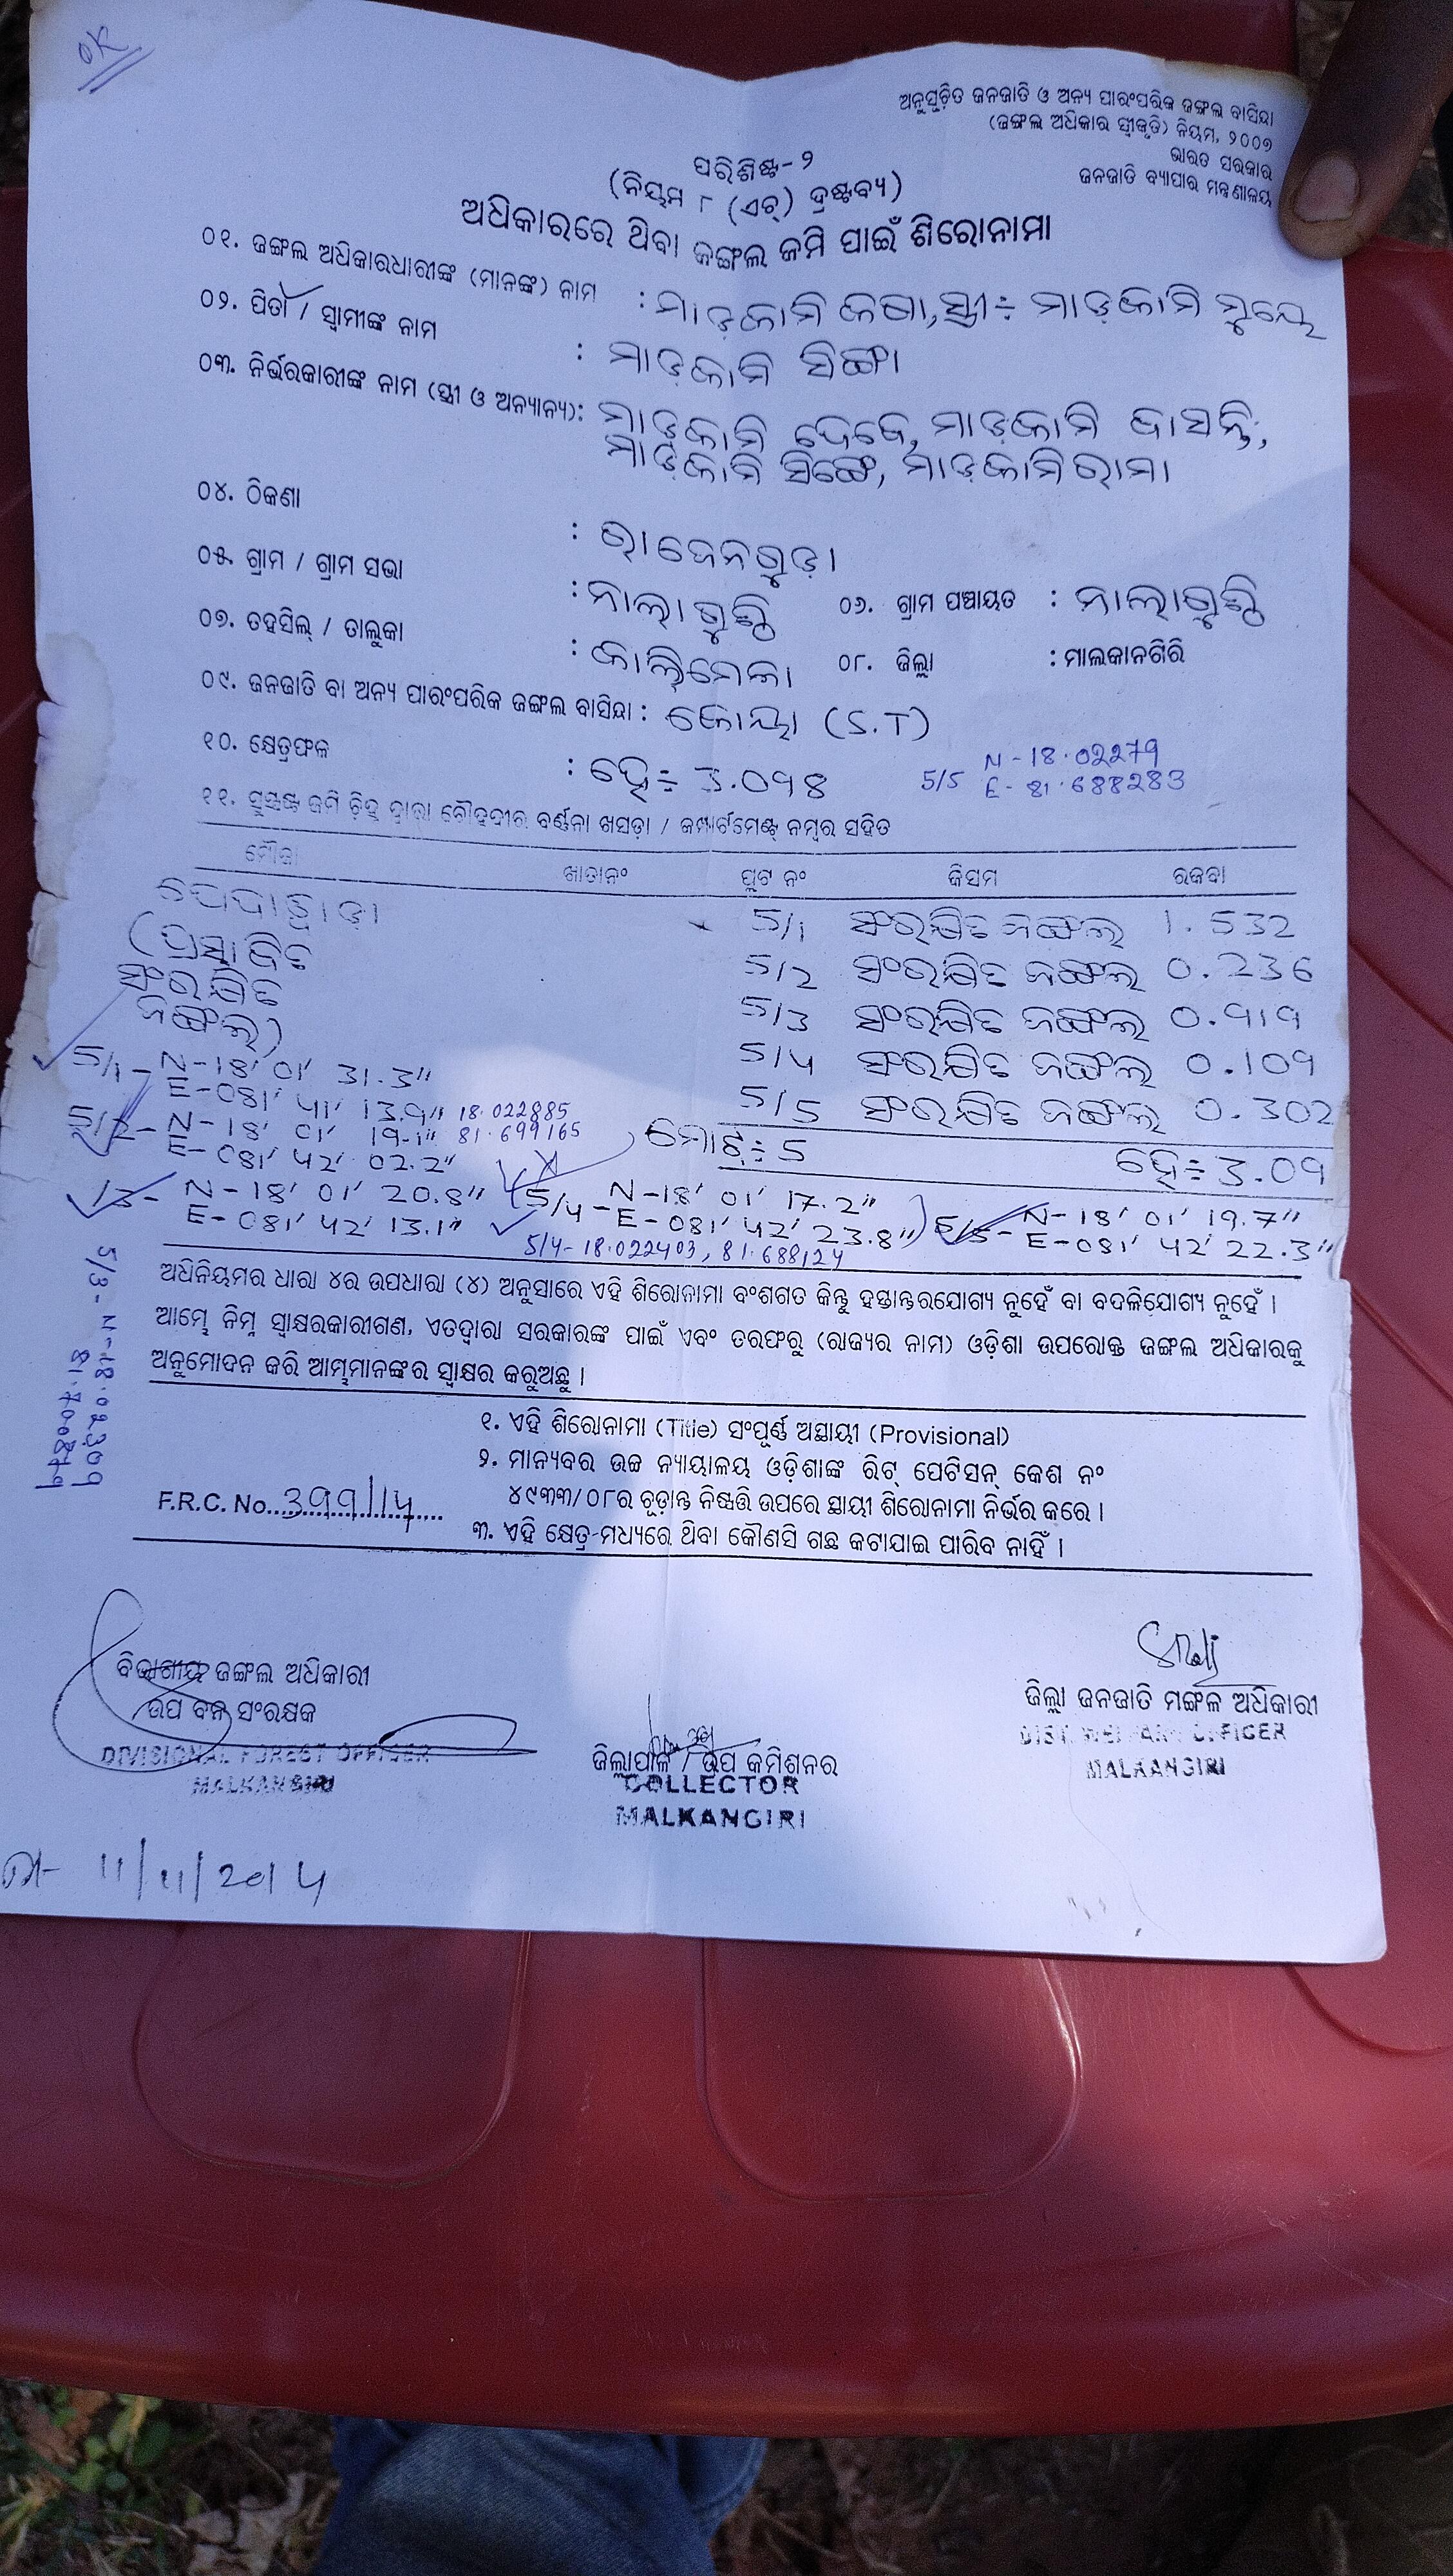 OK
ଅନୁସୂଚିତ ଜନଜାତି ଓ ଅନ୍ୟ ପାରଂପରିକ ଜଙ୍ଗଲ ବାସିନ୍ଦା
(ଜଙ୍ଗଲ ଅଧିକାର ସ୍ୱୀକୃତି) ନିୟମ, ୨୦୦୭
ଭାରତ ସରକାର
ଜନଜାତି ବ୍ୟାପାର ମନ୍ତ୍ରଣାଳୟ
ପରିଶିଷ୍ଟ-୨
(ନିୟମ ୮ (ଏଚ୍) ଦ୍ରଷ୍ଟବ୍ୟ)
ଅଧିକାରରେ ଥିବା ଜଙ୍ଗଲ ଜମି ପାଇଁ ଶିରୋନାମା
୦୧. ଜଙ୍ଗଲ ଅଧିକାରଧାରୀଙ୍କ (ମାନଙ୍କ) ନାମ : ମାଡ଼କାମି ସ୍ତ୍ରୀ ÷ ମାଡ଼କାମି
୦୨. ପିତା / ସ୍ୱାମୀଙ୍କ ନାମ : ମାଡ଼କାମି
୦୩. ନିର୍ଭରକାରୀଙ୍କ ନାମ (ସ୍ତ୍ରୀ ଓ ଅନ୍ୟାନ୍ୟ): ମାଡ଼କାମି ଦେବେ, ମାଡ଼କାମି ବାସନ୍ତି,
ମାଡ଼କାମି ସିଙ୍ଗେ, ମାଡ଼କାମି ରାମା
୦୪. ଠିକଣା : ରାଜେନଗୁଡ଼ା
୦୫. ଗ୍ରାମ / ଗ୍ରାମ ସଭା : ନାଲାଗୁଣ୍ଠି ୦୬. ଗ୍ରାମ ପଞ୍ଚାୟତ : ନାଲାଗୁଣ୍ଠି
୦୭. ତହସିଲ୍ / ତାଲୁକା : କାଲିମେଳା ୦୮. ଜିଲ୍ଲା : ମାଲକାନଗିରି
୦୯. ଜନଜାତି ବା ଅନ୍ୟ ପାରଂପରିକ ଜଙ୍ଗଲ ବାସିନ୍ଦା : କୋୟା (S.T)
୧୦. କ୍ଷେତ୍ରଫଳ : ହେ÷ 3.098
5/5 N-18.02279
E-81.688283
୧୧. ସୁସ୍ପଷ୍ଟ ଜମି ଚିହ୍ନ ଦ୍ୱାରା ଚୌହଦୀର ବର୍ଣ୍ଣନା ଖସଡ଼ା / କମ୍ପାର୍ଟମେଣ୍ଟ୍ ନମ୍ବର ସହିତ
ମୌଜା ଖାତାନଂ ପ୍ଲଟ ନଂ କିସମ ରକବା
5/1 ସଂରକ୍ଷିତ ଜଙ୍ଗଲ 1.532
(ପ୍ରସ୍ତାବିତ
ସଂରକ୍ଷିତ
ଜଙ୍ଗଲ)
5/2 ସଂରକ୍ଷିତ ଜଙ୍ଗଲ 0.236
5/3 ସଂରକ୍ଷିତ ଜଙ୍ଗଲ 0.919
5/4 ସଂରକ୍ଷିତ ଜଙ୍ଗଲ 0.109
5/5 ସଂରକ୍ଷିତ ଜଙ୍ଗଲ 0.302
ମୋଟ÷ 5 ହେ÷ 3.09
5/1- N-18' 01' 31.3"
E-081' 41' 13.9" 18.022885
5/2- N-18' 01' 19.1" 81.699165
E-081' 42' 02.2"
/3- N-18' 01' 20.8"
E-081' 42' 13.1"
(5/4- N-18' 01' 17.2"
E-081' 42' 23.8")
5/4-18.022403, 81.688124
5/5- N-18' 01' 19.7"
E-081' 42' 22.3"
5/3- N-18.02309
ଅଧିନିୟମର ଧାରା ୪ର ଉପଧାରା (୪) ଅନୁସାରେ ଏହି ଶିରୋନାମା ବଂଶଗତ କିନ୍ତୁ ହସ୍ତାନ୍ତରଯୋଗ୍ୟ ନୁହେଁ ବା ବଦଳିଯୋଗ୍ୟ ନୁହେଁ ।
ଆମ୍ଭେ ନିମ୍ନ ସ୍ୱାକ୍ଷରକାରୀଗଣ, ଏତଦ୍ଦ୍ୱାରା ସରକାରଙ୍କ ପାଇଁ ଏବଂ ତରଫରୁ (ରାଜ୍ୟର ନାମ) ଓଡ଼ିଶା ଉପରୋକ୍ତ ଜଙ୍ଗଲ ଅଧିକାରକୁ
ଅନୁମୋଦନ କରି ଆମ୍ଭମାନଙ୍କର ସ୍ୱାକ୍ଷର କରୁଅଛୁ ।
୧. ଏହି ଶିରୋନାମା (Title) ସଂପୂର୍ଣ୍ଣ ଅସ୍ଥାୟୀ (Provisional)
୨. ମାନ୍ୟବର ଉଚ୍ଚ ନ୍ୟାୟାଳୟ ଓଡ଼ିଶାଙ୍କ ରିଟ୍ ପେଟିସନ୍ କେଶ ନଂ
୪୯୩୩/୦୮ର ଚୂଡ଼ାନ୍ତ ନିଷ୍ପତ୍ତି ଉପରେ ସ୍ଥାୟୀ ଶିରୋନାମା ନିର୍ଭର କରେ ।
F.R.C. No. 399/14
୩. ଏହି କ୍ଷେତ୍ର ମଧ୍ୟରେ ଥିବା କୌଣସି ଗଛ କଟାଯାଇ ପାରିବ ନାହିଁ ।
ବିଭାଗୀୟ ଜଙ୍ଗଲ ଅଧିକାରୀ
ଉପ ବନ ସଂରକ୍ଷକ
DIVISIONAL FOREST OFFICER
MALKANGIRI
ଜିଲ୍ଲାପାଳ / ଉପ କମିଶନର
COLLECTOR
MALKANGIRI
ଜିଲ୍ଲା ଜନଜାତି ମଙ୍ଗଳ ଅଧିକାରୀ
DIST. WELFARE OFFICER
MALKANGIRI
ତା- 11/11/2014